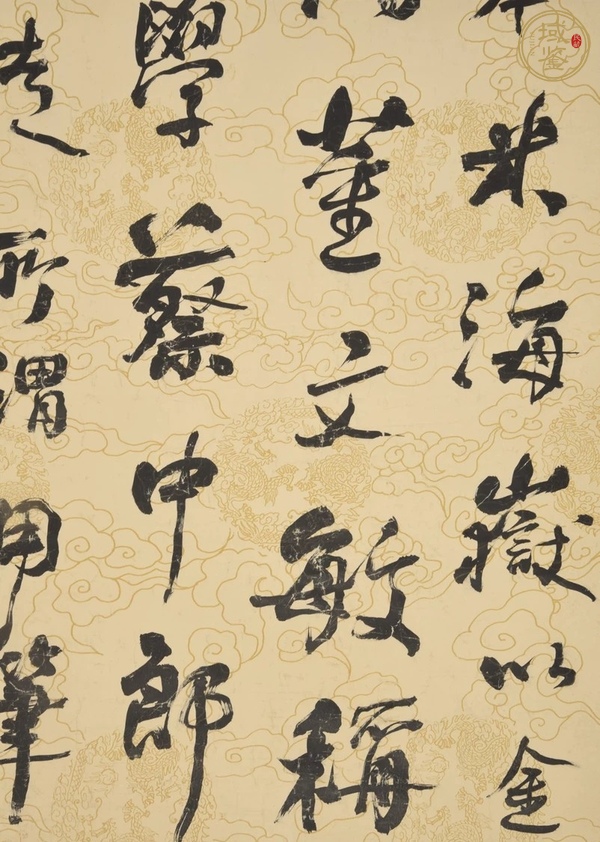 米海嶽以金
董文敏稱
學蔡中郎
所謂用筆